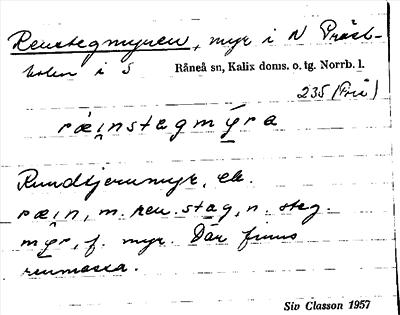 Renstegmyren, myr i N Präst-
holm i S Råneå sn, Kalix doms. o. tg. Norrb. l.
235 (Frå)
ræi̯nstagmy̱ra
Rundtjernmyr, el.
ræi̯n, m. ren. stag, n. steg.
my̱r, f. myr. Där finns
renmossa.
Siv Classon 1957